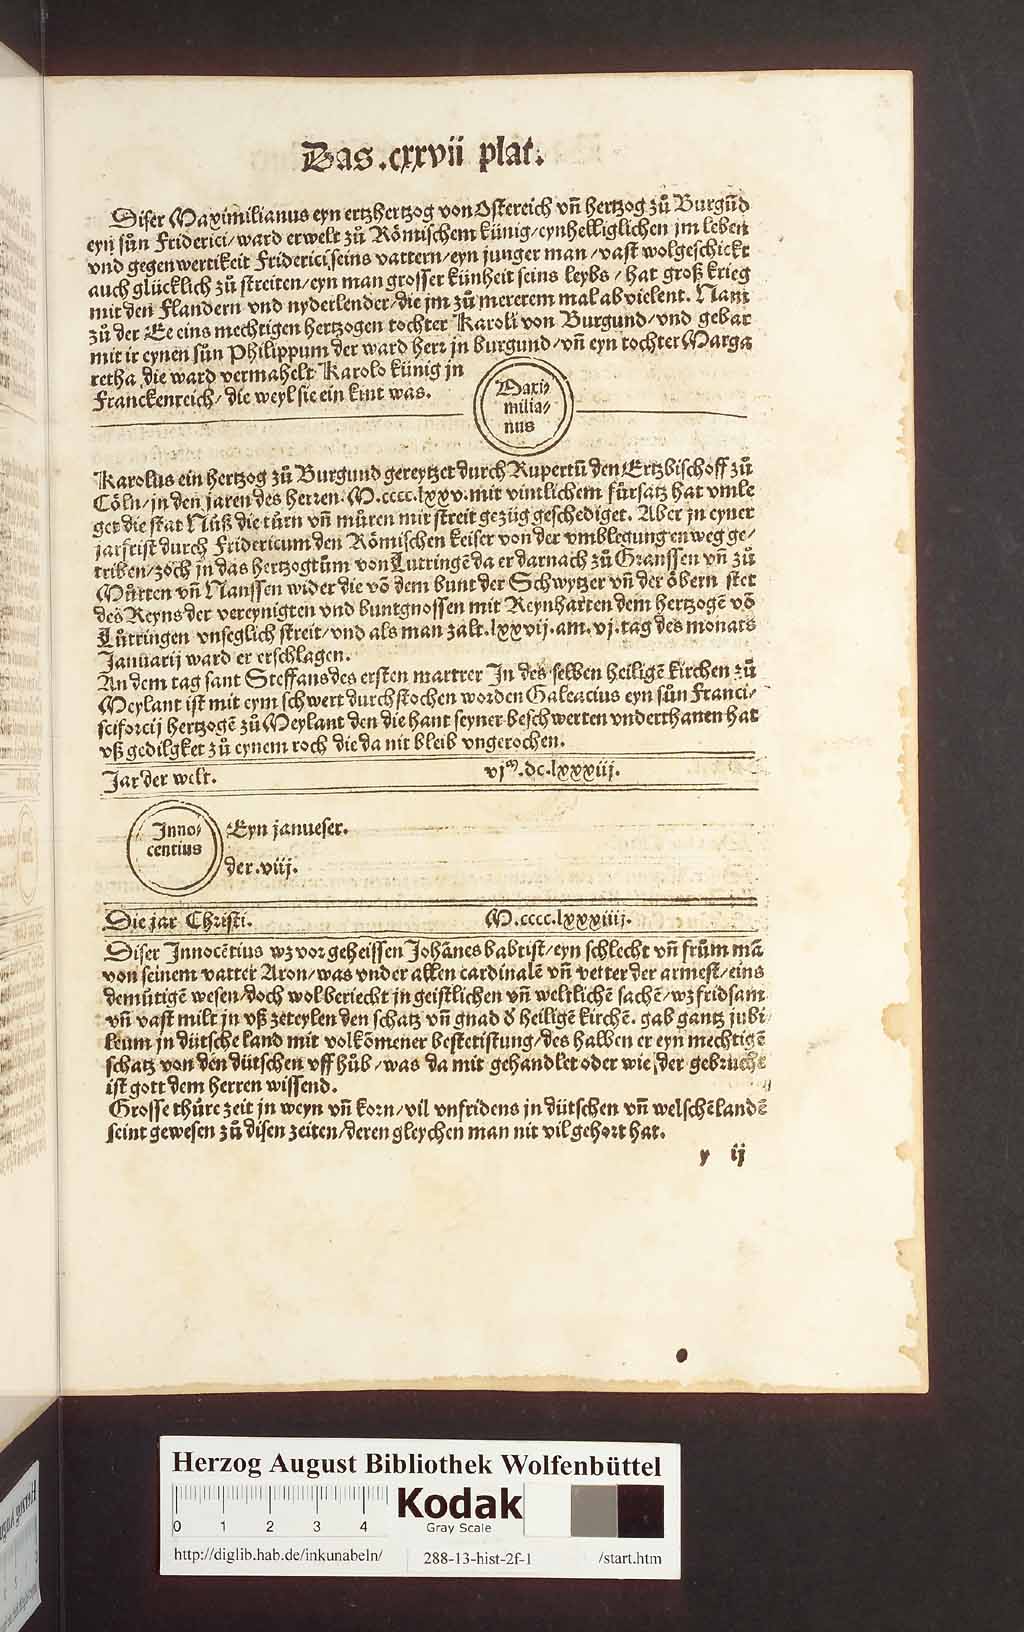 Das .cxxvii plat.
Diser Maximilianus eyn ertzhertzog von Ostereich vn̄ hertzog zů Burgūd
eyn sůn Friderici/ ward erwelt zů Römischem künig/ eynhelliglichen jm leben
vnd gegenwertikeit Friderici, seins vattern/ eyn junger man/ vast wolgeschickt
auch glücklich zů streiten/ eyn man grosser künheit seins leybs/ hat groß krieg
mit den Flandern vnd nyderlender/ die jm zů mererem mal abvielent. Nam
zů der Ee eins mechtigen hertzogen tochter Karoli von Burgund/ vnd gebar
mit ir eynen sůn Philippum der ward herr jn burgund/ vn̄ eyn tochter Marga
retha die ward vermahelt Karolo künig jn
Franckenreich/ die weyl sie ein kint was.
Maxi/
milia/
nus
Karolus ein hertzog zů Burgund gereytzet durch Rupertū den Ertzbischoff zů
Cöln/ in den jaren des herren. M.cccc.lxxv. mit vintlichem fürsatz hat vmle
get die stat Nüß die türn vn̄ můren mit streit gezüg geschediget. Aber jn eyner
jarfrist durch Fridericum den Römischen keiser von der vmblegung enweg ge/
triben/ zoch jn das hertzogtům von Lutringē da er darnach zů Granssen vn̄ zů
Můrten vn̄ Nanssen wider die vō dem bunt der Schwytzer vn̄ der öbern stet
des Reyns der vereynigten vnd buntgnossen mit Reynharten dem hertzogē vō
Lůtringen vnseglich streit/ vnd als man zalt .lxxvij. am .vj. tag des monats
Januarij ward er erschlagen.
An dem tag sant Steffans des ersten martrer Jn des selben heiligē kirchen zů
Meylant ist mit eym schwert durchstochen worden Galeacius eyn sůn Franci/
sciforcij hertzogē zů Meylant den die hant seyner beschwerten vnderthanen hat
vß gedilgket zů eynem roch die da nit bleib vngerochen.
Jar der welt. vjᵐ.dc.lxxxiij.
Inno/
centius
Eyn janueser.
der .viij.
Die jar Christi. M.cccc.lxxxiiij.
Diser Innocētius wz vor geheissen Johānes babtist/ eyn schlecht vn̄ frům mā
von seinem vatter Aron/ was vnder allen cardinalē vn̄ vetter der armest/ eins
demůtigē wesen/ doch wol beriecht jn geistlichen vn̄ weltlichē sachē/ wz fridsam
vn̄ vast milt jn vß zeteylen den schatz vn̄ gnad d̄ heiligē kirchē. gab gantz jubi
leum jn dütsche land mit volkōmener bestetistung/ des halben er eyn mechtigē
schatz von den dütschen vff hůb/ was da mit gehandlet oder wie der gebruche
ist gott dem herren wissend.
Grosse thüre zeit jn weyn vn̄ korn/ vil vnfridens jn dütschen vn̄ welschē landē
seint gewesen zů disen zeiten/ deren gleychen man nit vil gehort hat.
y ij
Herzog August Bibliothek Wolfenbüttel
0 1 2 3 4
Kodak
Gray Scale
http://diglib.hab.de/inkunabeln/ 288-13-hist-2f-1 /start.htm